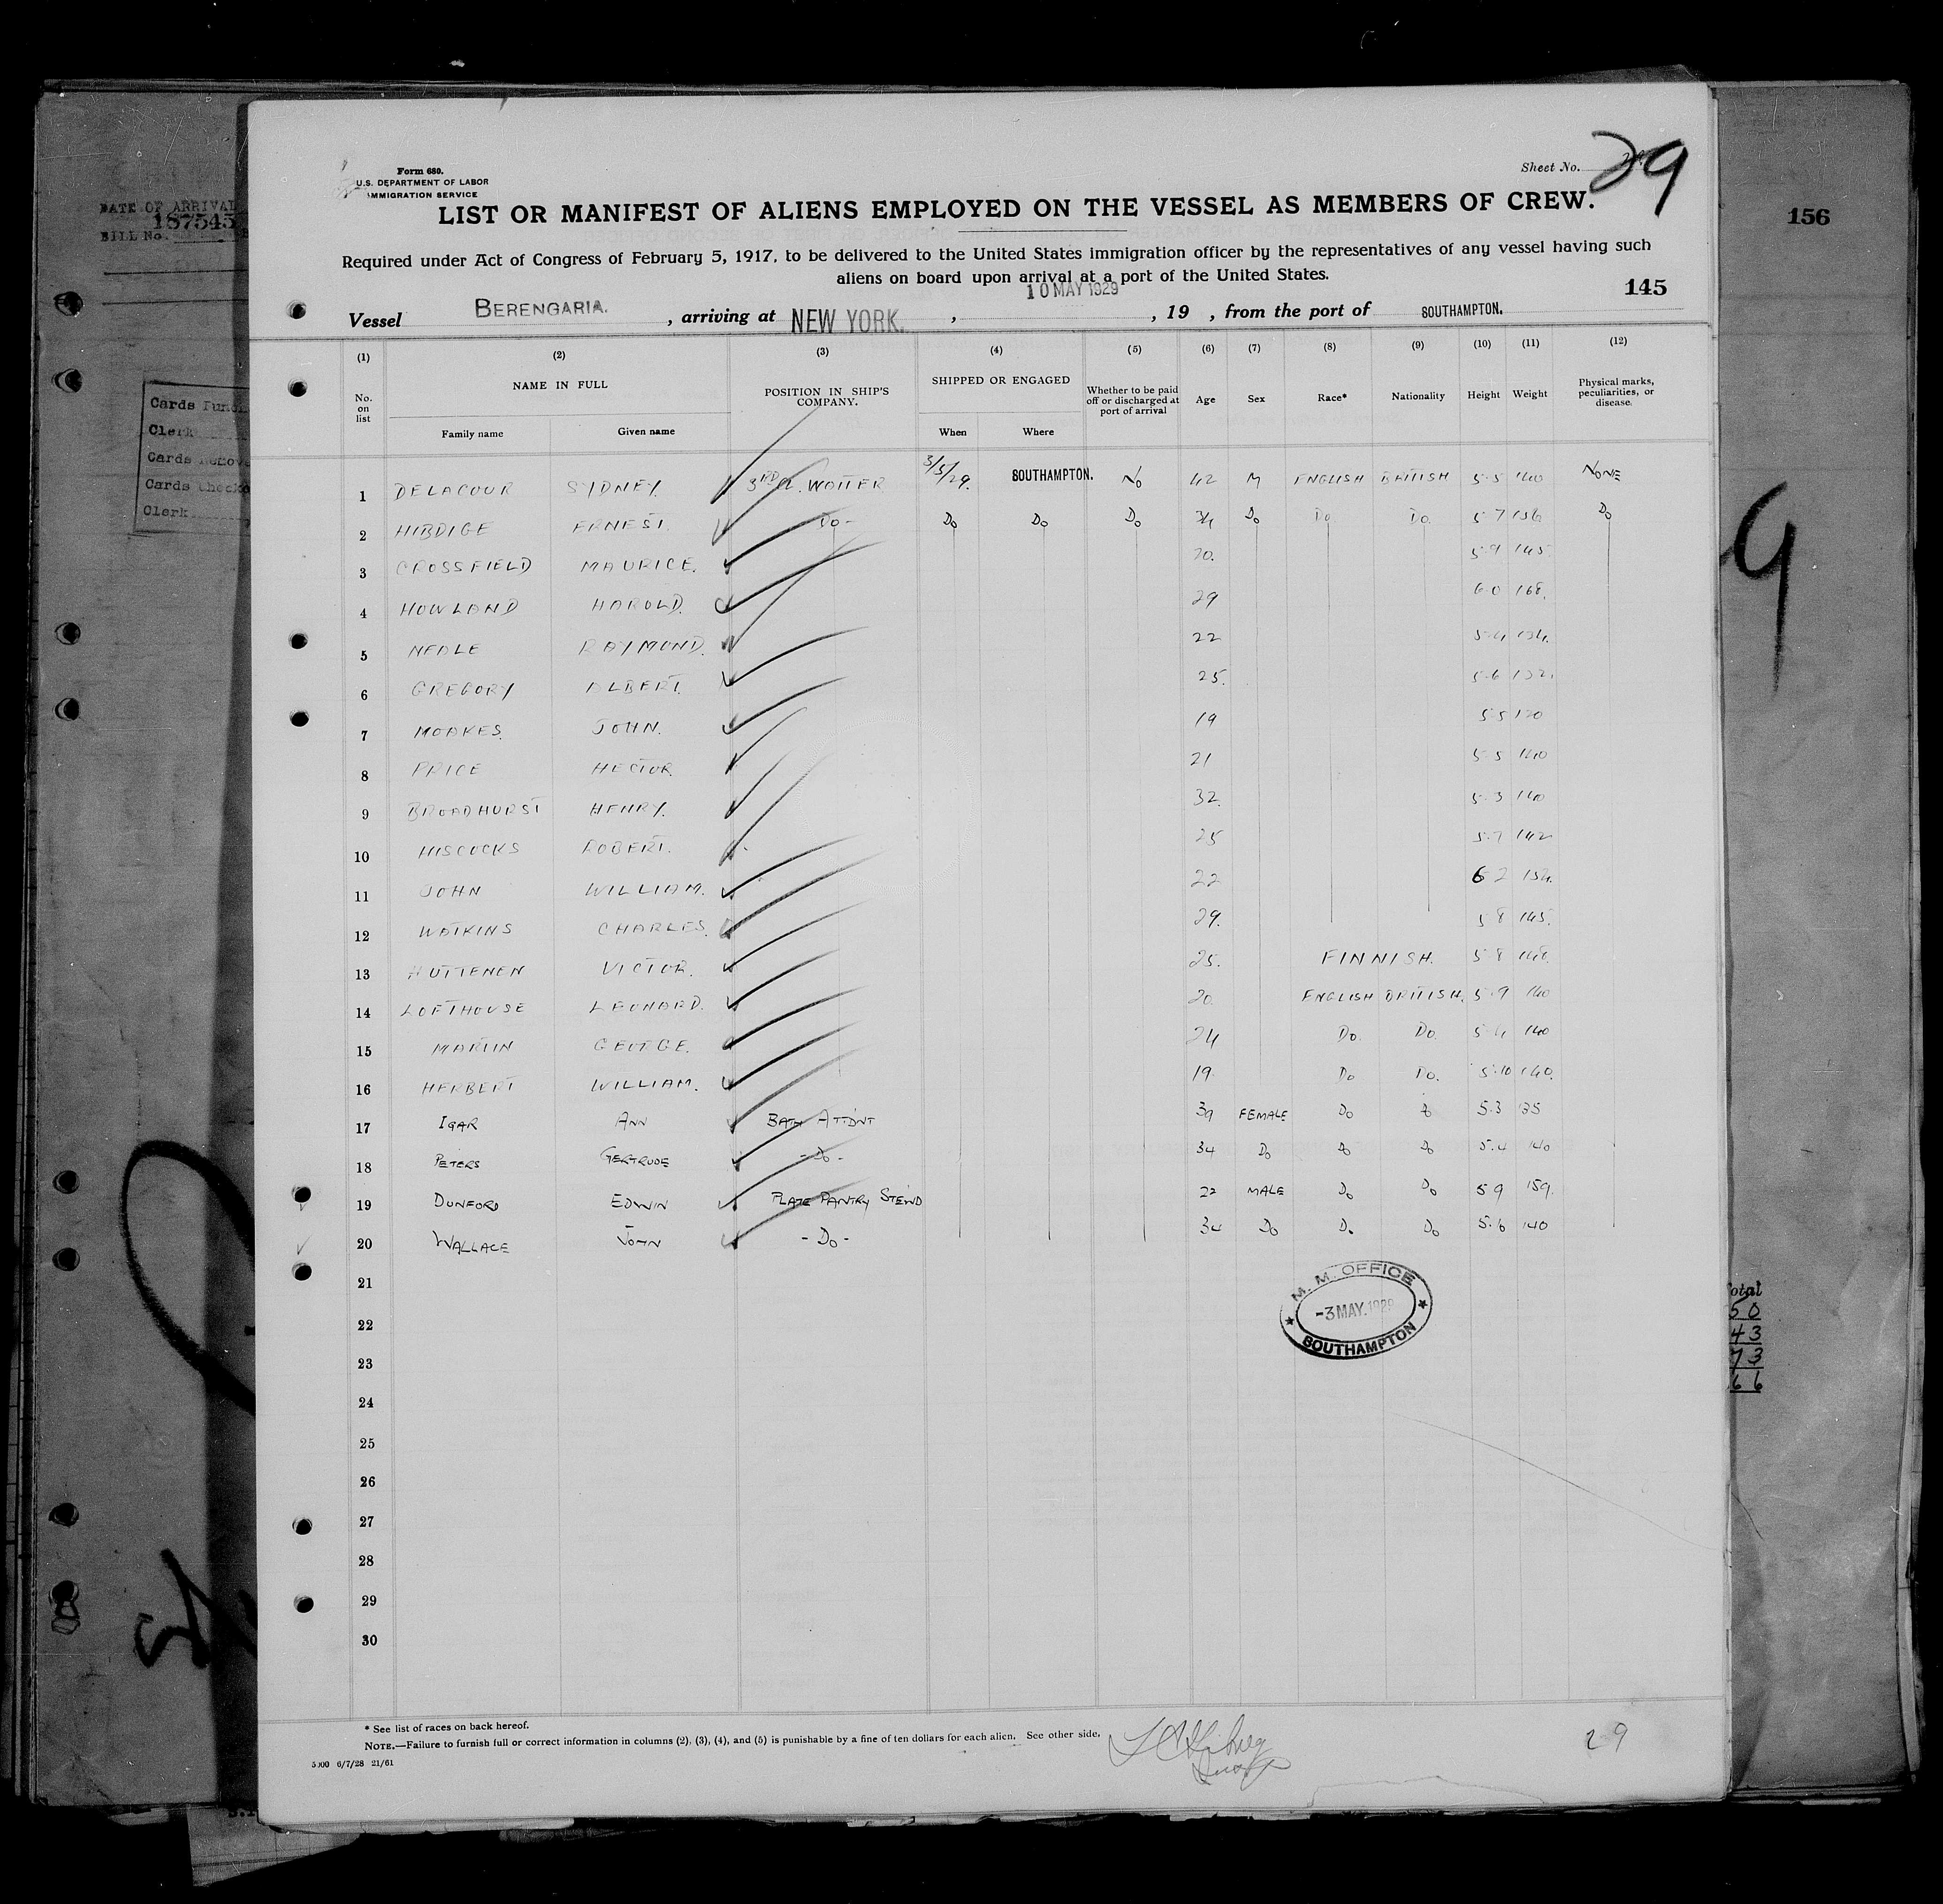 Form 680.
U.S. DEPARTMENT OF LABOR
IMMIGRATION SERVICE
Sheet No. 29
LIST OR MANIFEST OF ALIENS EMPLOYED ON THE VESSEL AS MEMBERS OF CREW.
Required under Act of Congress of February 5, 1917, to be delivered to the United States immigration officer by the representatives of any vessel having such
aliens on board upon arrival at a port of the United States.
10 MAY 1929
145
Vessel BERENGARIA. , arriving at NEW YORK. , , 19 , from the port of SOUTHAMPTON.
(1) (2) (3) (4) (5) (6) (7) (8) (9) (10) (11) (12)
No. on list NAME IN FULL POSITION IN SHIP'S COMPANY. SHIPPED OR ENGAGED Whether to be paid off or discharged at port of arrival Age Sex Race* Nationality Height Weight Physical marks, peculiarities, or disease.
Family name Given name When Where
1 DELACOUR SYDNEY. 3RD CL. WAITER 3/5/29. SOUTHAMPTON. No 42 M ENGLISH BRITISH 5-5 140 NONE
2 HIBDIGE ERNEST. Do- Do Do Do 34 Do Do Do. 5-7 136 Do
3 CROSSFIELD MAURICE. 20. 5-9 145.
4 HOWLAND HAROLD. 29 6-0 168.
5 NEALE RAYMOND. 22 5-4 134.
6 GREGORY ALBERT. 25. 5-6 132.
7 MOAKES. JOHN. 19 5-5 130
8 PRICE HECTOR. 21 5-5 140
9 BROADHURST HENRY. 32. 5-3 140
10 HISCOCKS ROBERT. 25 5-7 142
11 JOHN WILLIAM. 22 6 2 154.
12 WATKINS CHARLES. 29. 5 8 145.
13 HUTTENEN VICTOR. 25. FINNISH. 5-8 148.
14 LOFTHOUSE LEONARD. 20. ENGLISH BRITISH. 5-9 140
15 MARTIN GEORGE. 24 Do. Do. 5-4 140
16 HERBERT WILLIAM. 19. Do Do. 5-10 140.
17 IGAR ANN BATH ATTDNT 39 FEMALE Do Do 5.3 135
18 PETERS GERTRUDE -Do- 34 Do Do Do 5.4 140
19 DUNFORD EDWIN PLATE PANTRY STEWD 22 MALE Do Do 5 9 159.
20 WALLACE JOHN -Do- 34 Do Do Do 5.6 140
21
M. M. OFFICE
-3 MAY. 1929
SOUTHAMPTON
22
23
24
25
26
27
28
29
30
* See list of races on back hereof.
NOTE.—Failure to furnish full or correct information in columns (2), (3), (4), and (5) is punishable by a fine of ten dollars for each alien. See other side.
5000 6/7/28 21/61
29
DATE OF ARRIVAL
187545
BILL No.
Cards
Clerk
Cards
Cards
Clerk
156
9
Total
50
43
73
66